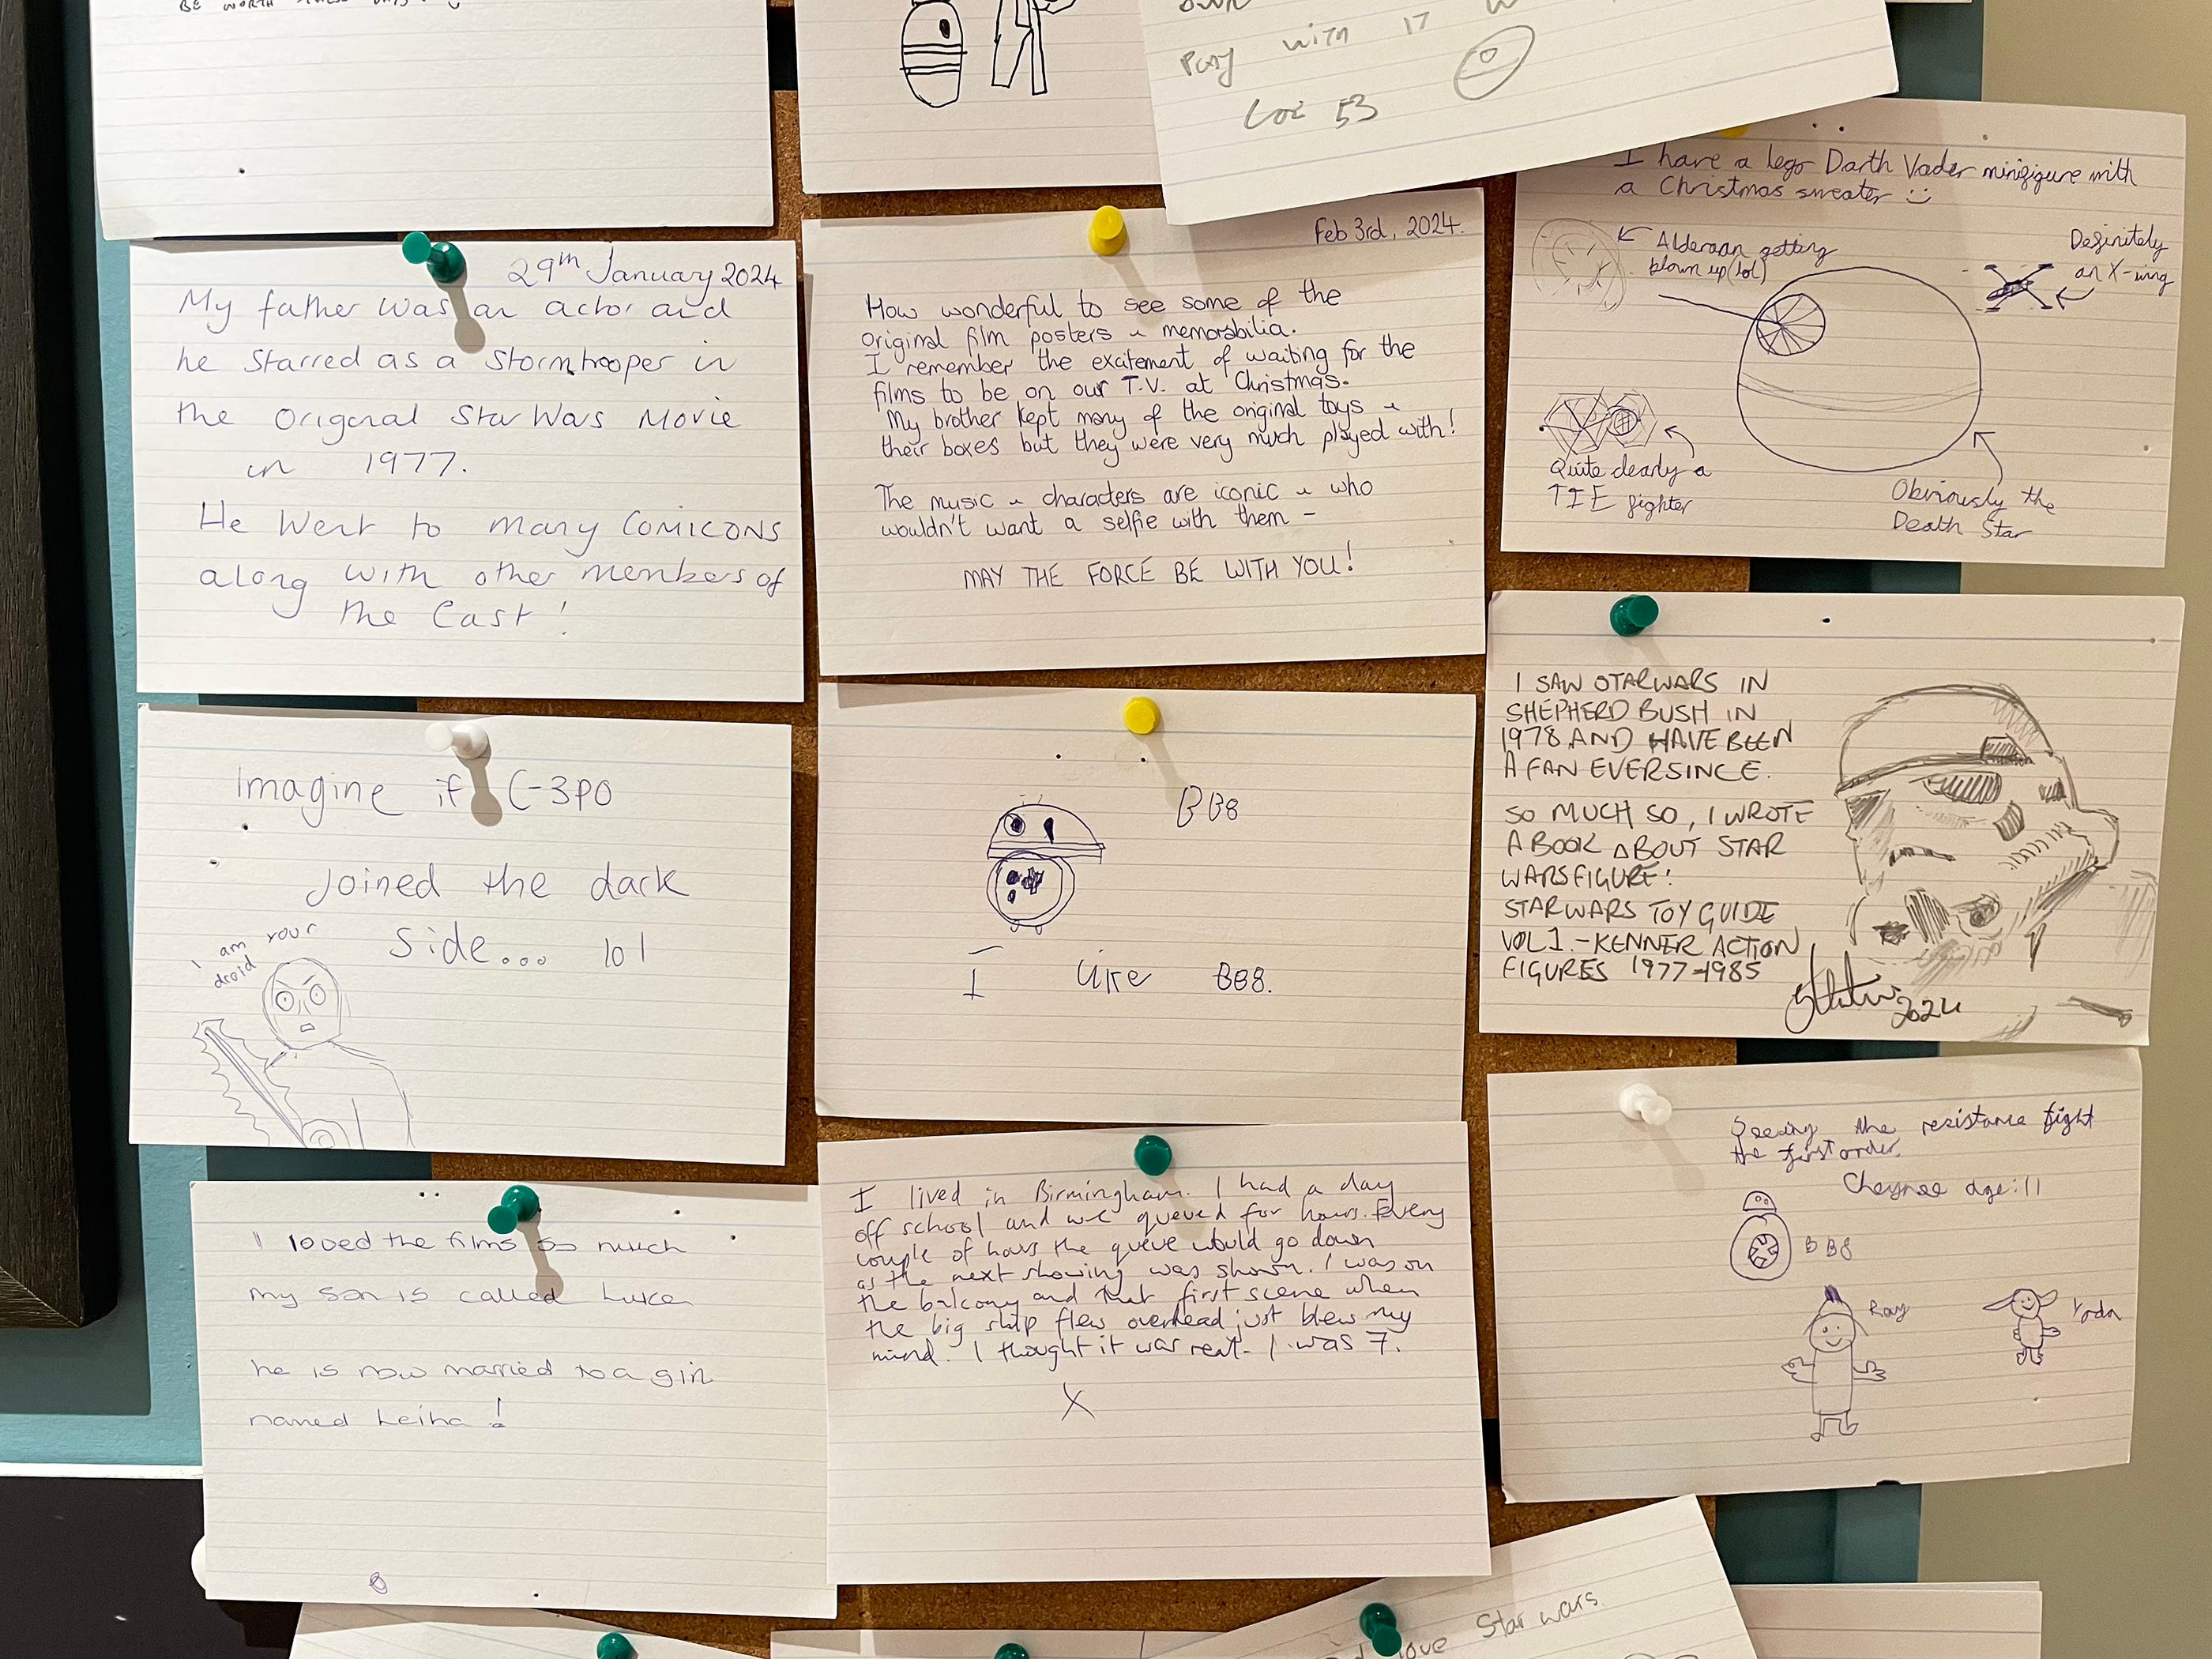 BE WORTH THESE
Play with 17
Loc 53
I have a lego Darth Vader minifigure with
a Christmas sweater :)
Alderaan getting
blown up (lol)
Definitely
an X-wing
Quite clearly a
TIE fighter
Obviously the
Death Star
29th January 2024
My father was an actor and
he Starred as a Stormtrooper in
the Original Star Wars Movie
in 1977.
He Went to many COMICONS
along with other members of
the Cast!
Feb 3rd, 2024.
How wonderful to see some of the
original film posters & memorabilia.
I remember the excitement of waiting for the
films to be on our T.V. at Christmas.
My brother kept many of the original toys &
their boxes but they were very much played with!
The music & characters are iconic & who
wouldn't want a selfie with them -
MAY THE FORCE BE WITH YOU!
I SAW STARWARS IN
SHEPHERD BUSH IN
1978 AND HAVE BEEN
A FAN EVERSINCE.
SO MUCH SO, I WROTE
A BOOK ABOUT STAR
WARS FIGURE:
STARWARS TOY GUIDE
VOL 1. - KENNER ACTION
FIGURES 1977-1985
2024
Imagine if C-3PO
Joined the dark
side... lol
I am your
droid
BB8
I like BB8.
Seeing the resistance fight
the first order.
age: 11
BB8
Ray
Yoda
I loved the films so much
my son is called Luke
he is now married to a girl
named Leiha!
I lived in Birmingham. I had a day
off school and we queued for hours. Every
couple of hours the queue would go down
as the next showing was shown. I was on
the balcony and that first scene when
the big ship flew overhead just blew my
mind. I thought it was real - I was 7.
X
love Star wars.